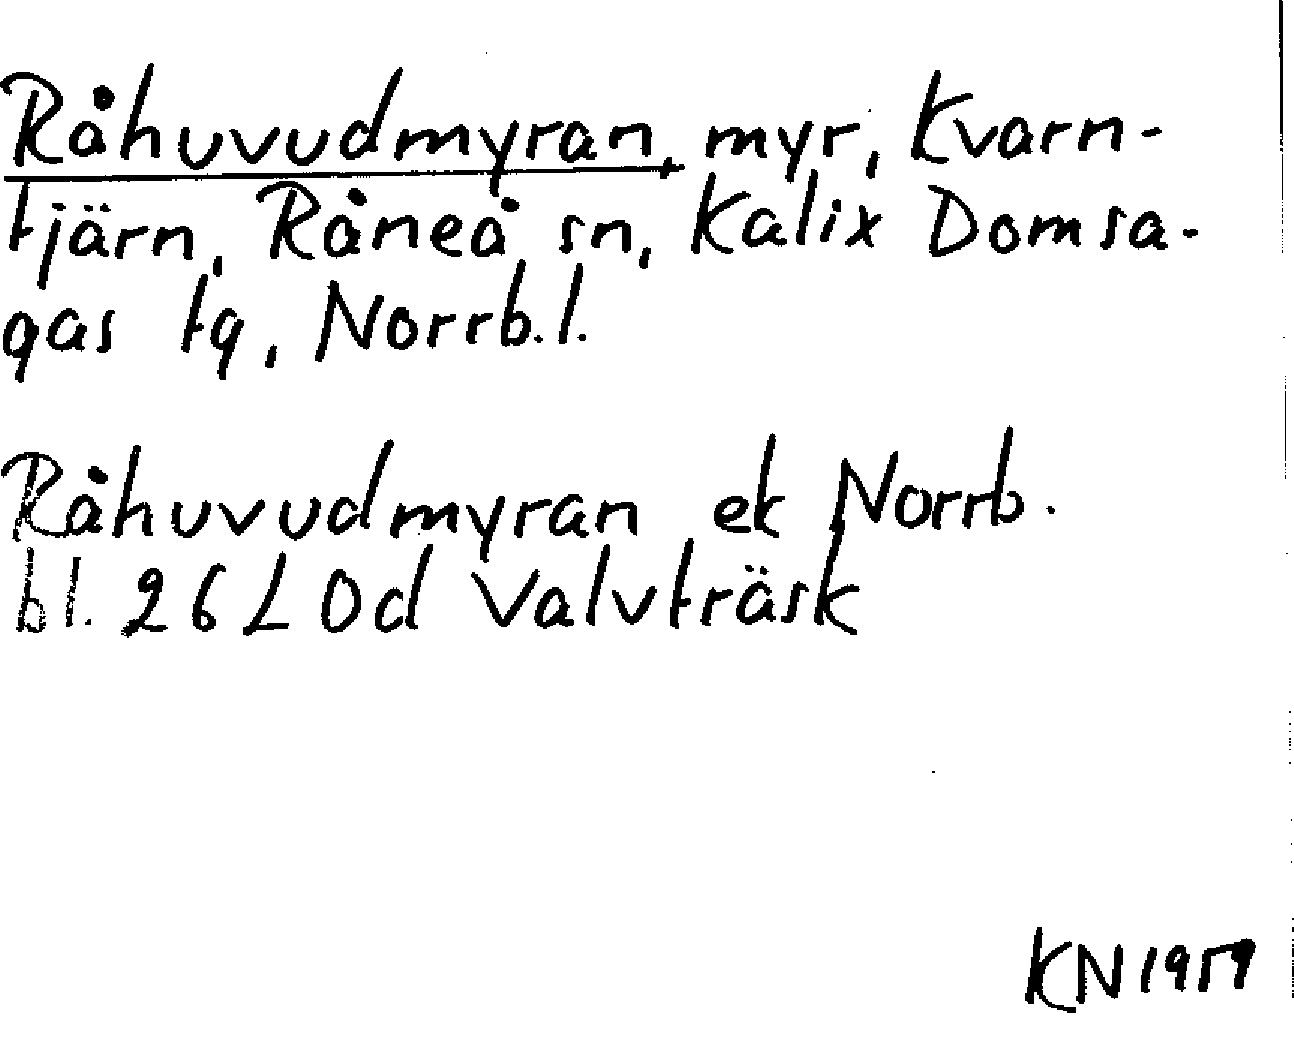 Råhuvudmyran, myr, Kvarn-
tjärn, Råneå sn, Kalix Domsa-
gas tg, Norrb. l.
Råhuvudmyran ek Norrb.
bl. 26 L 0d Valvträsk
KN